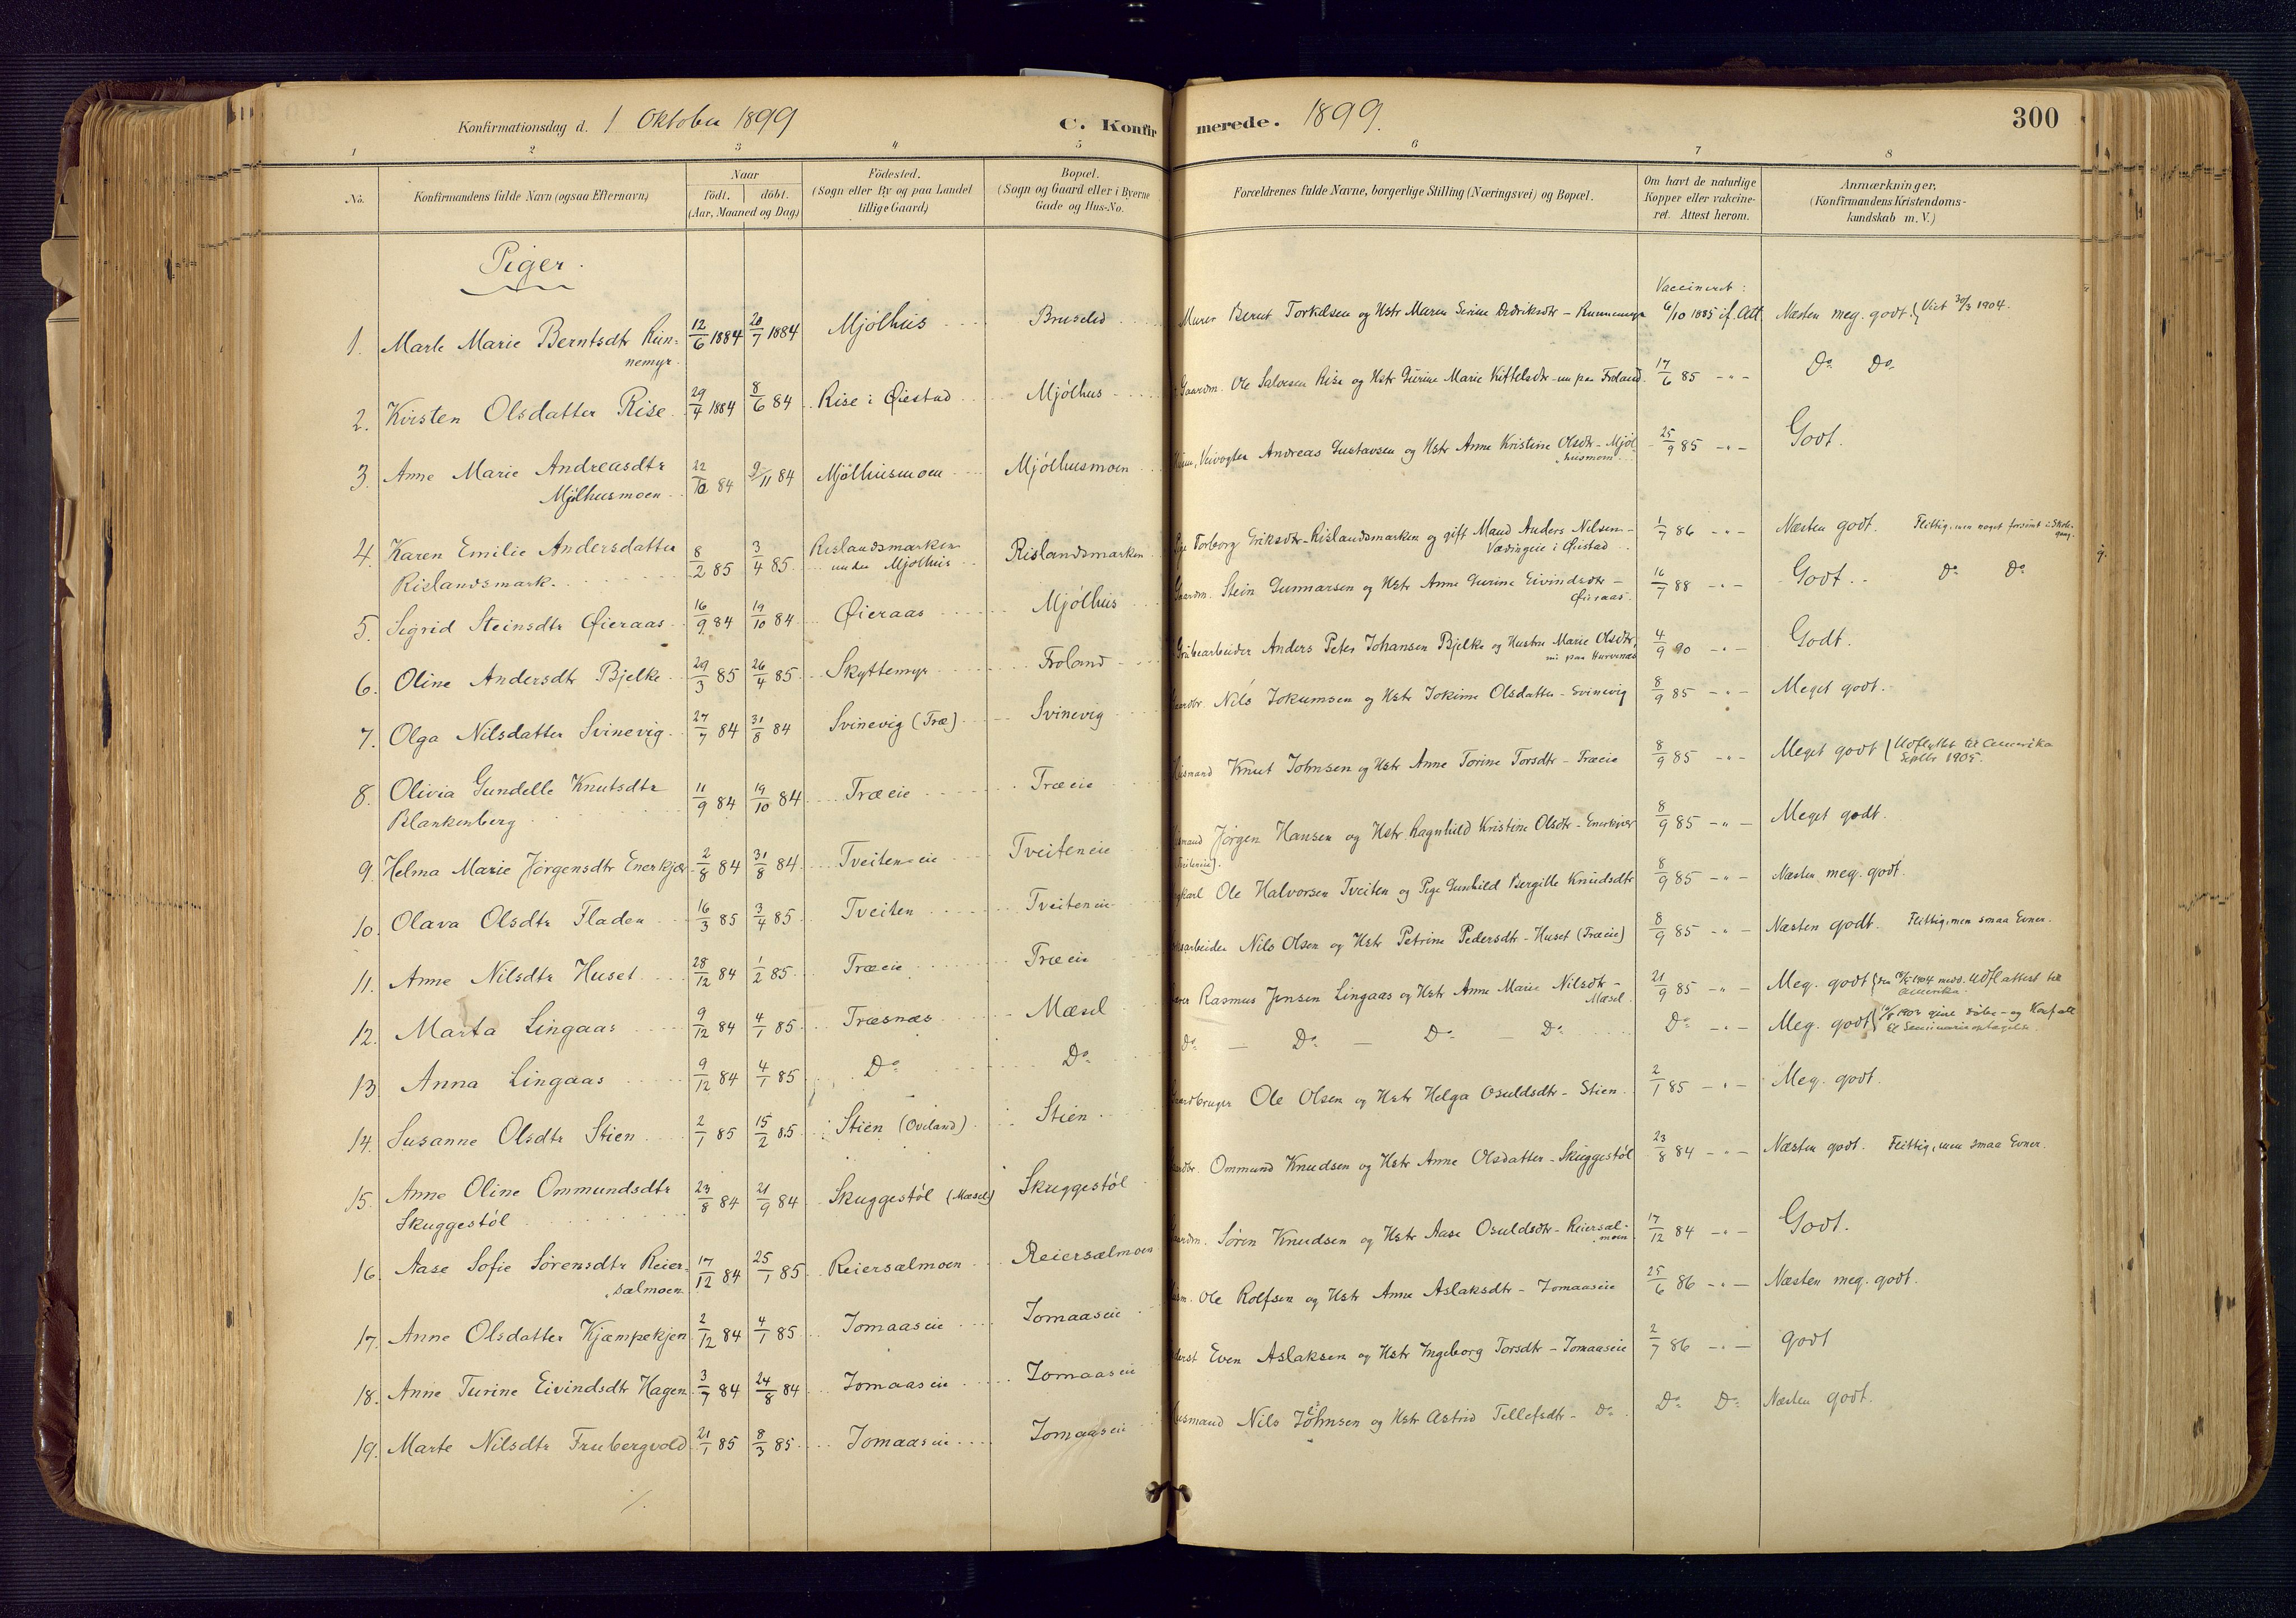 Konfirmationsdag d. 1 Oktober 1899
C. Konfirmerede. 1899.
300
1 2 3 4 5 6 7 8
No. Konfirmandens fulde Navn (ogsaa Efternavn) Naar födt. döbt. (Aar, Maaned og Dag.) Födested. (Sogn eller By og paa Landet tillige Gaard.) Bopæl. (Sogn og Gaard eller i Byerne Gade og Hus-No. Forældrenes fulde Navne, borgerlige Stilling (Næringsvei) og Bopæl. Om havt de naturlige Kopper eller vakcineret. Attest herom. Anmærkninger. (Konfirmandens Kristendomskundskab m. V.)
Piger.
Vaccineret:
1. Marte Marie Berntsdtr Runnemyr 12/6 1884 20/7 1884 Mjølhus Bruslid Murer Bernt Torkilsen og Hstr Maren Serine Didriksdtr - Runnemyr 6/10 1885 if. Att. Næsten meg. godt. Viet 30/3 1904.
2. Kristen Olsdatter Rise 29/4 1884 8/6 84 Rise i Øiestad Mjølhus Gaardm. Ole Salvesen Rise og Hstr Gurine Marie Kittelsdtr - nu paa Froland. 17/6 85 -"- Do Do
3. Anne Marie Andreasdtr Mjølhusmoen 22/10 84 9/11 84 Mjølhusmoen Mjølhusmoen Veivogter Andreas Gustavsen og Hstr Anne Kristine Olsdtr - Mjølhusmoen 25/9 85 -"- Godt.
4. Karen Emilie Andersdatter Rislandsmark. 8/2 85 3/4 85 Rislandsmarken under Mjølhus Rislandsmarken Pige Torborg Eriksdtr - Rislandsmarken og gift Mand Anders Nilsen - Vævingeie i Øiestad 1/7 86 -"- Næsten godt. Flittig, men noget forsømt i Skolegang.
5. Sigrid Steinsdtr Øieraas 16/9 84 19/10 84 Øieraas Mjølhus Gaardm. Stein Gunnarsen og Hstr Anne Gurine Eivindsdtr - Øieraas. 16/7 88 -"- Godt. Do Do
6. Oline Andersdtr Bjelke 29/3 85 26/4 85 Skyttemyr Froland Grubearbeider Anders Peter Johansen Bjelke og Hustru Marie Olsdtr, nu paa Hurvenæs 4/9 90 -"- Godt.
7. Olga Nilsdatter Svinevig. 27/7 84 31/8 84 Svinevig (Træ) Svinevig Gaardbr. Nils Jokumsen og Hstr Jokime Olsdatter - Svinevig 8/9 85 -"- Meget godt.
8. Olivia Gundelle Knutsdtr Blankenberg 11/9 84 19/10 84 Træeie Træeie Husmand Knut Johnsen og Hstr Anne Torine Torsdtr - Træeie 8/9 85 -"- Meget godt Udflyttet til Amerika Septbr 1905.
9. Helma Marie Jørgensdtr Enerkjær 2/8 84 31/8 84 Tveiteneie Tveiteneie Husmand Jørgen Hansen og Hstr. Ragnhild Kristine Olsdtr - Enerkjær (Tveiteneie). 8/9 85 -"- Meget godt.
10. Olava Olsdtr Fladen 16/3 85 3/4 85 Tveiten Tveiteneie Ungkarl Ole Halvorsen Tveiten og Pige Gunhild Bergitte Knudsdtr 8/9 85 -"- Næsten meg. godt.
11. Anne Nilsdtr Huset 28/12 84 1/2 85 Træeie Træeie Nils Olsen og Hstr Petrine Pedersdtr - Huset (Træeie) 8/9 85 -"- Næsten godt. Flittig, men smaa Evner.
12. Marta Lingaas 9/12 84 4/1 85 Træsnæs Mæsel Lærer Rasmus Jensen Lingaas og Hstr Anne Marie Nilsdtr - Mæsel. 21/9 85 -"- Meg. godt 1904 medd. Udfl attest til Amerika.
13. Anna Lingaas 9/12 84 4/1 85 Do Do Do - Do - Do - Do Do -"- Meg. godt 1902 givet Døbe- og Konf att til Seminarieoptagelse.
14. Susanne Olsdtr Stien 2/1 85 15/2 85 Stien (Oveland) Stien Gaardbruger Ole Olsen og Hstr Helga Osuldsdtr - Stien. 2/1 85 -"- Meg. godt.
15. Anne Oline Ommundsdtr Skuggestøl 23/8 84 21/9 84 Skuggestøl (Mæsel) Skuggestøl Gaardbr. Ommund Knudsen og Hstr Anne Olsdatter - Skuggestøl 23/8 84 -"- Næsten godt. Flittig, men smaa Evner.
16. Aase Sofie Sørensdtr Reiersælmoen 17/12 84 25/1 85 Reiersælmoen Reiersælmoen Gaardm. Søren Knudsen og Hstr Aase Osuldsdtr - Reiersælmoen 17/12 84 -"- Godt.
17. Anne Olsdatter Kjæmpekjen 2/12 84 4/1 85 Jomaaseie Jomaaseie Husm. Ole Rolfsen og Hstr Anne Aslaksdtr - Jomaaseie 25/6 86 -"- Næsten meg. godt.
18. Anne Turine Eivindsdtr Hagen 3/7 84 24/8 84 Jomaaseie Jomaaseie Inderst Even Aslaksen og Hstr Ingeborg Torsdtr - Jomaaseie 2/7 86 -"- godt
19. Marte Nilsdtr Frubergvold 21/1 85 8/3 85 Jomaaseie Jomaaseie Husmand Nils Johnsen og Hstr Astrid Tellefsdtr - Do. Do Do Næsten godt.